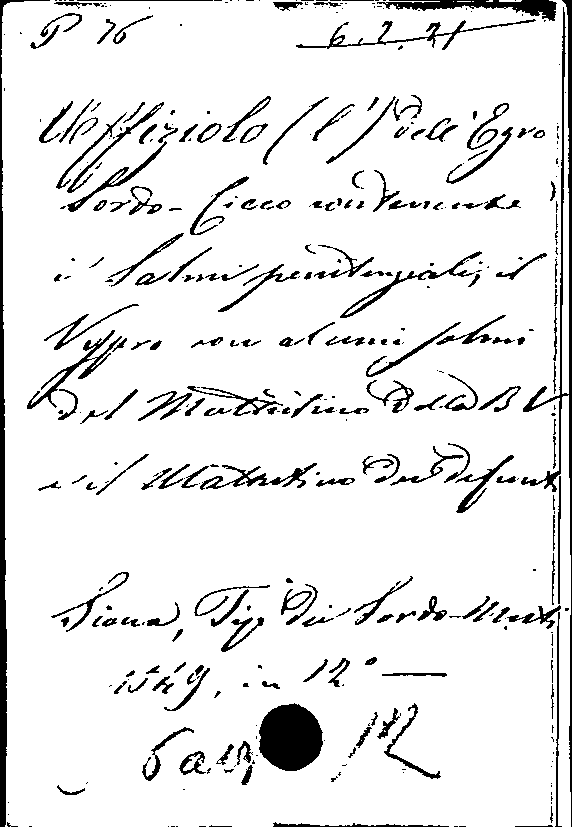 P 76 6.2.21
Uffiziolo (l') dell' Egro
Sordo-Cieco contenente
i Salmi penitenziali, il
Vespro con alcuni salmi
del Mattutino della B V.
e il Mattutino dei defunti
Siena, Tip. dei Sordo-Muti
1849, in 12° —